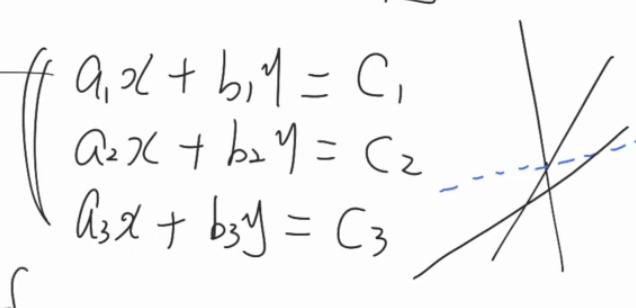 a₁x + b₁y = C₁
a₂x + b₂y = C₂
a₃x + b₃y = C₃